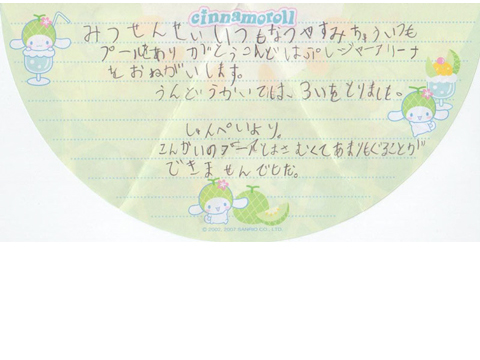 cinnamoroll
みつせんせいいつもなつやすみちゅういつも
プールをありがとうこんどはぷレジャーアリーナ
をおねがいします。
うんどうかいでは、3いをとりました。
しゃんぺいより。
こんかいのプールはさむくてあまりもぐることが
できませんでした。